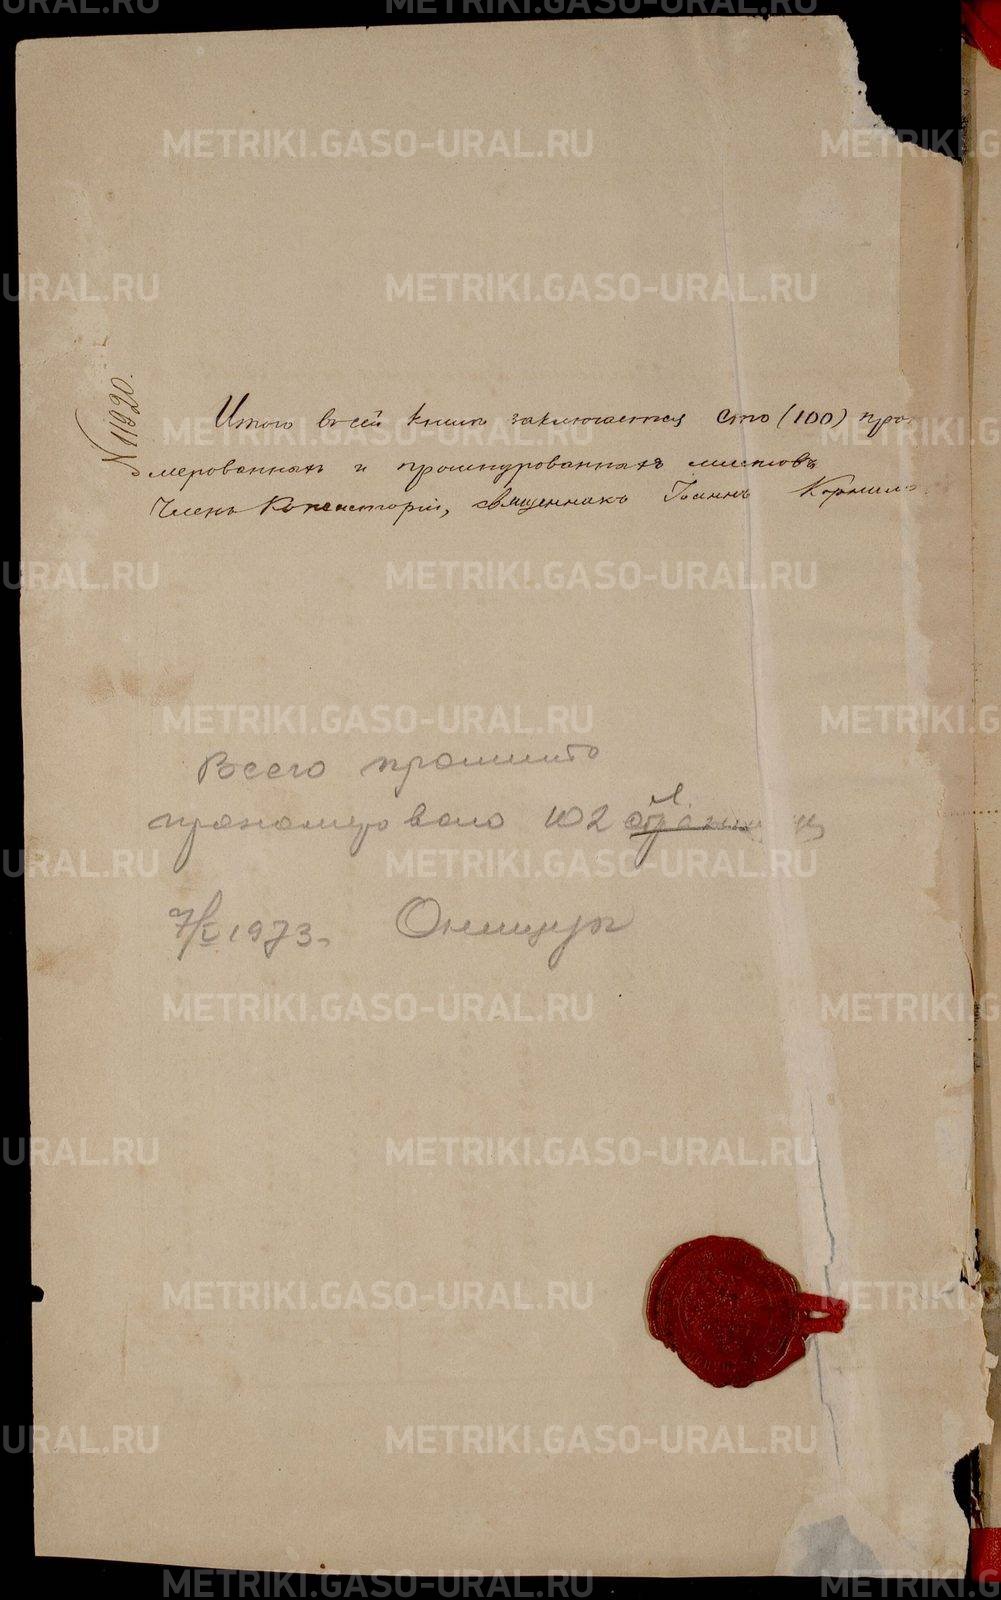 N 11920.
Итого въ сей книгѣ заключается сто (100) про-
мерованныхъ и прошнурованныхъ листовъ
Членъ Консисторіи, священникъ Іоаннъ
Всего прошито
прономеровано 102 л. страниц
7/I 1973.
METRIKI.GASO-URAL.RU